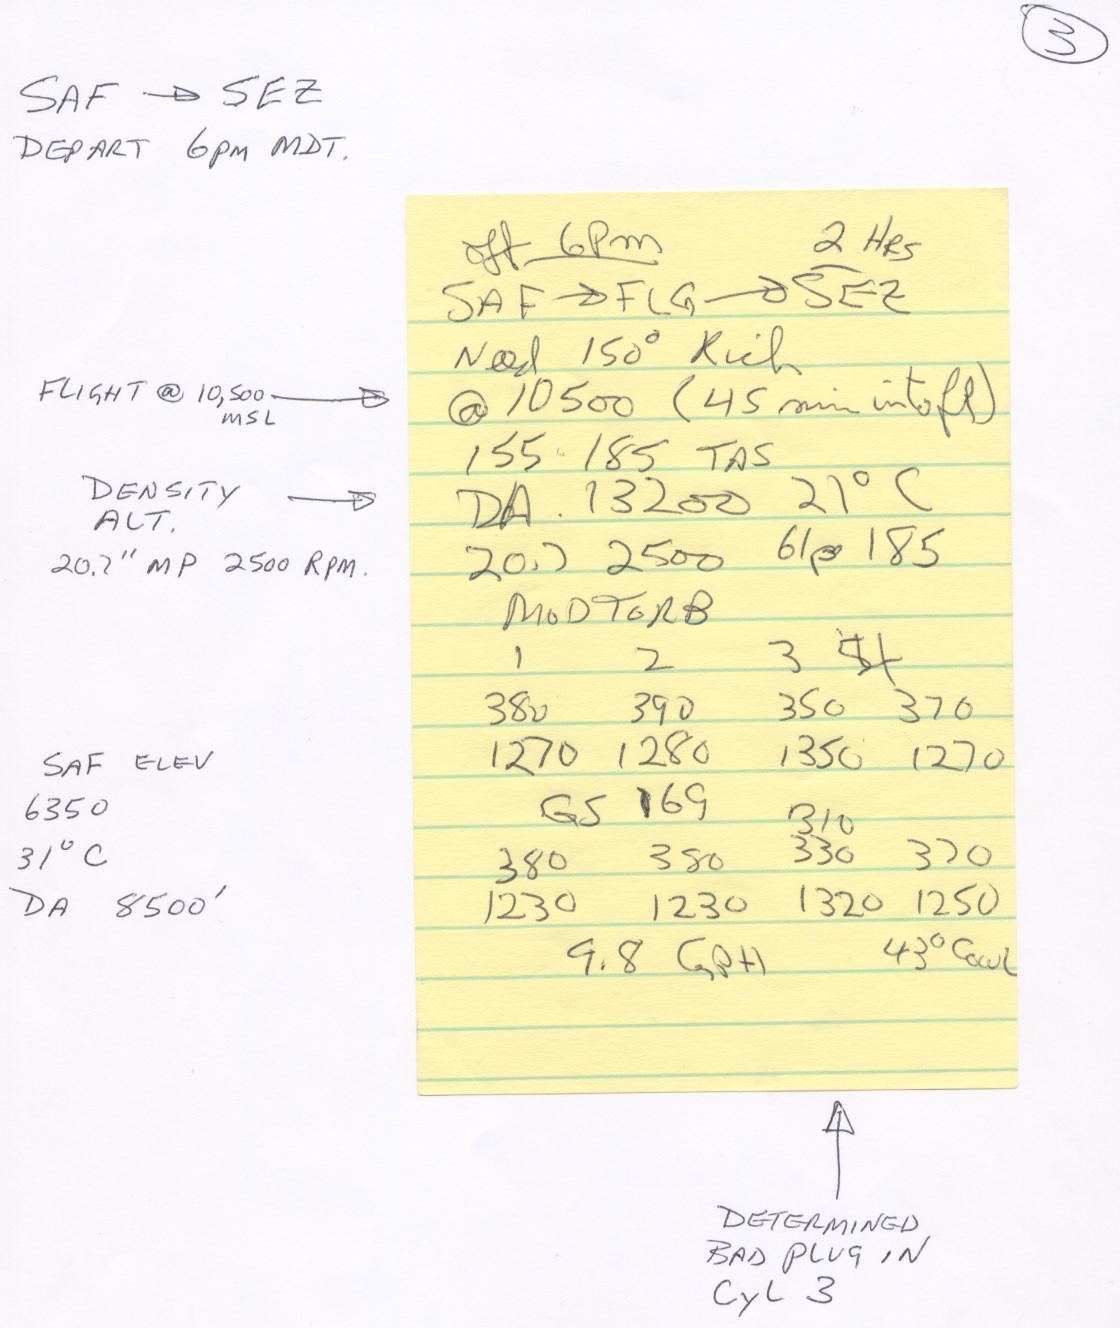 3
SAF → SEZ
DEPART 6pm MDT.
off 6Pm 2 HRS
SAF → FLG → SEZ
Need 150° Rich
FLIGHT @ 10,500 MSL →
@ 10500 (45 min into fl)
155-185 TAS
DENSITY ALT. →
DA. 13200 21° C
20.7" MP 2500 RPM.
20.7 2500 185
MOD TURB
1 2 3 4
380 390 350 370
1270 1280 1350 1270
SAF ELEV
6350
31° C
DA 8500'
GS 169
310
380 380 330 370
1230 1230 1320 1250
9.8 GPH 43° Cowl
DETERMINED
BAD PLUG IN
CYL 3